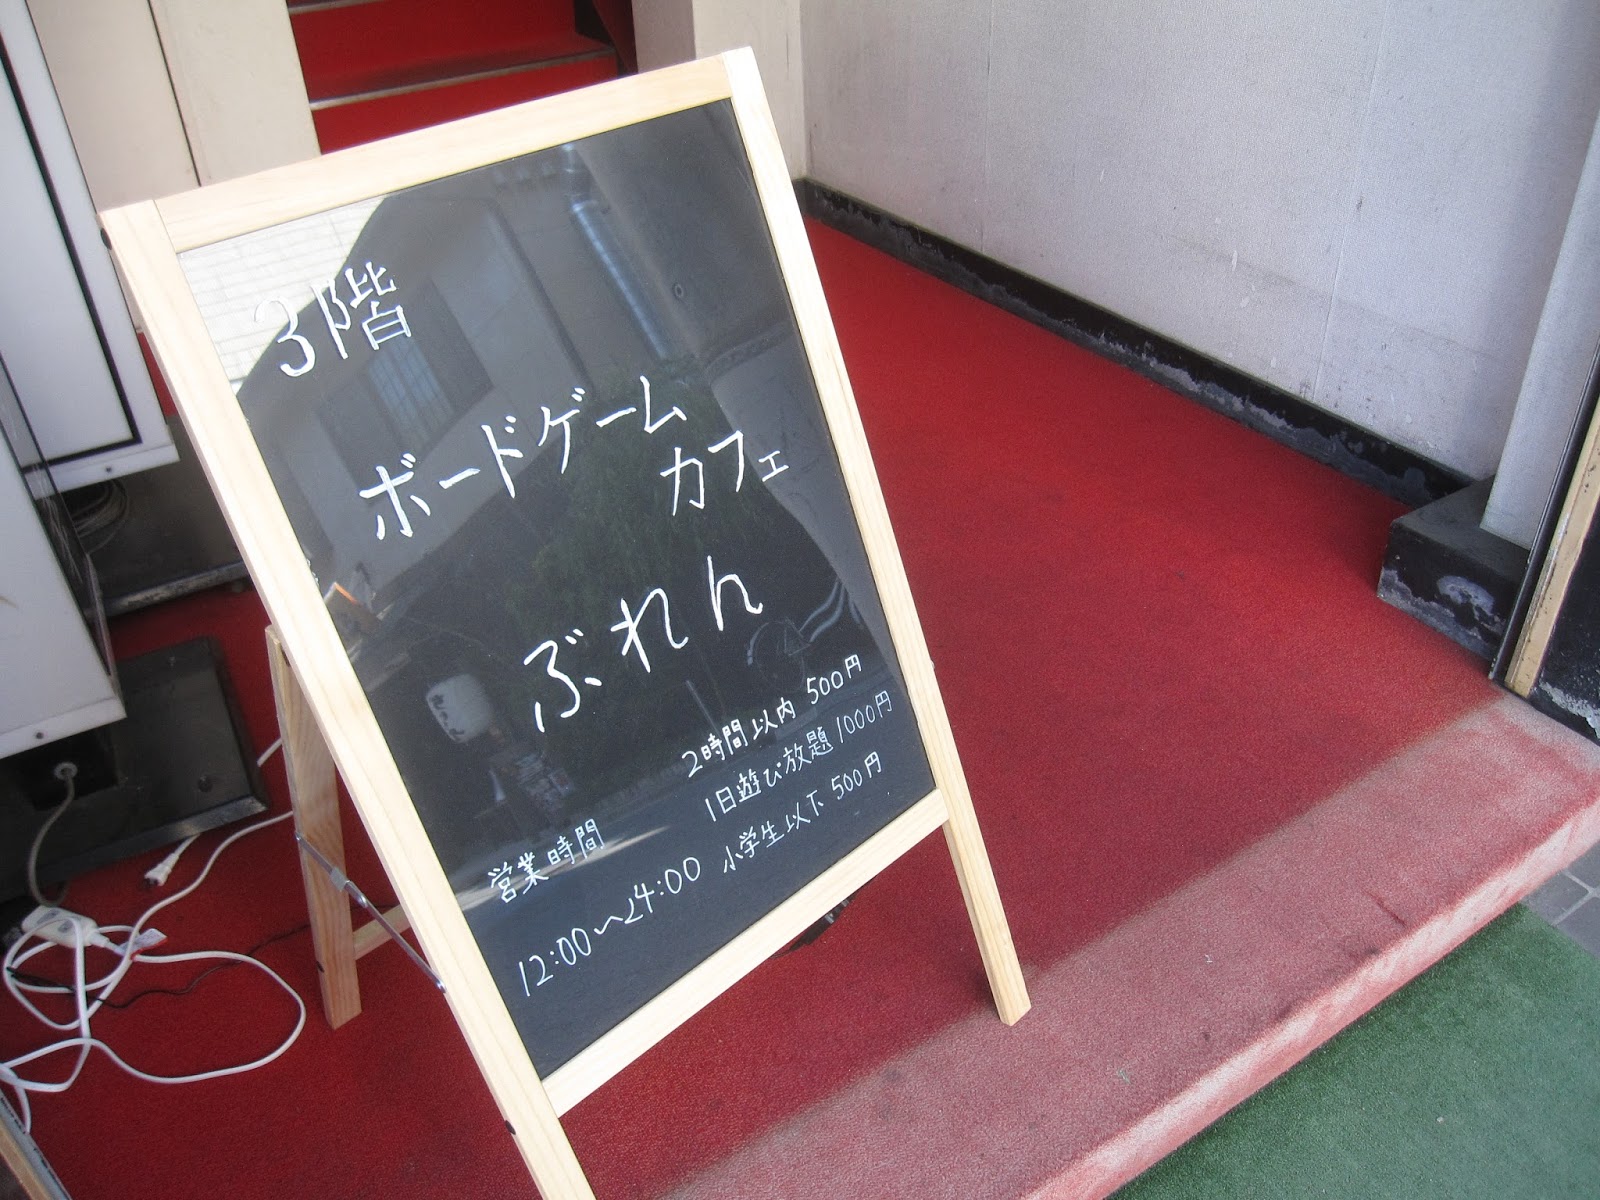 3階
ボードゲーム
カフェ
ぶれん
2時間以内 500円
1日遊び放題 1000円
小学生以下 500円
営業時間
12:00〜24:00